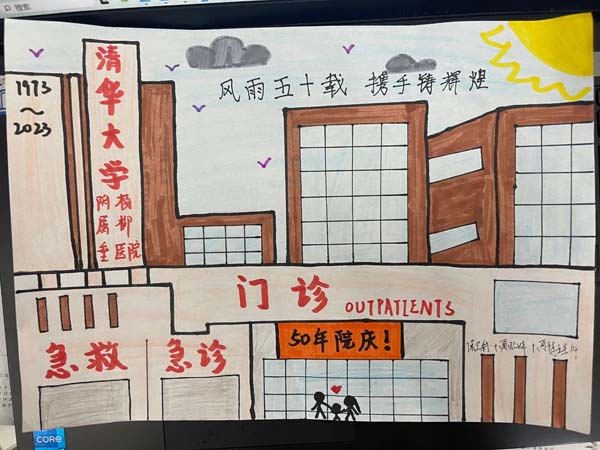 风雨五十载 携手铸辉煌
1973
～
2023
清华大学
附属垂
杨柳医院
门诊 OUTPATIENTS
50年院庆!
急救
急诊
core
搜索